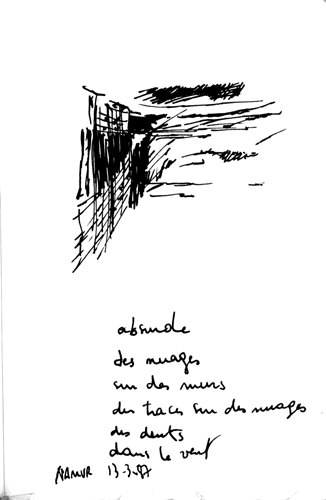 absurde
des nuages
sur des murs
des traces sur des nuages
des dents
dans le vent
NAMUR 13.3.87